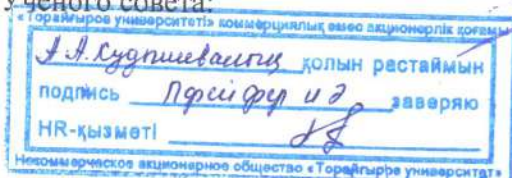 Ученого совета:
«Торайғыров университеті» коммерциялық емес акционерлік қоғамы
А.А.Кудышеваның қолын растаймын
подпись Пфейфер и Э заверяю
HR-қызметі
Некоммерческое акционерное общество «Торайгыров университет»